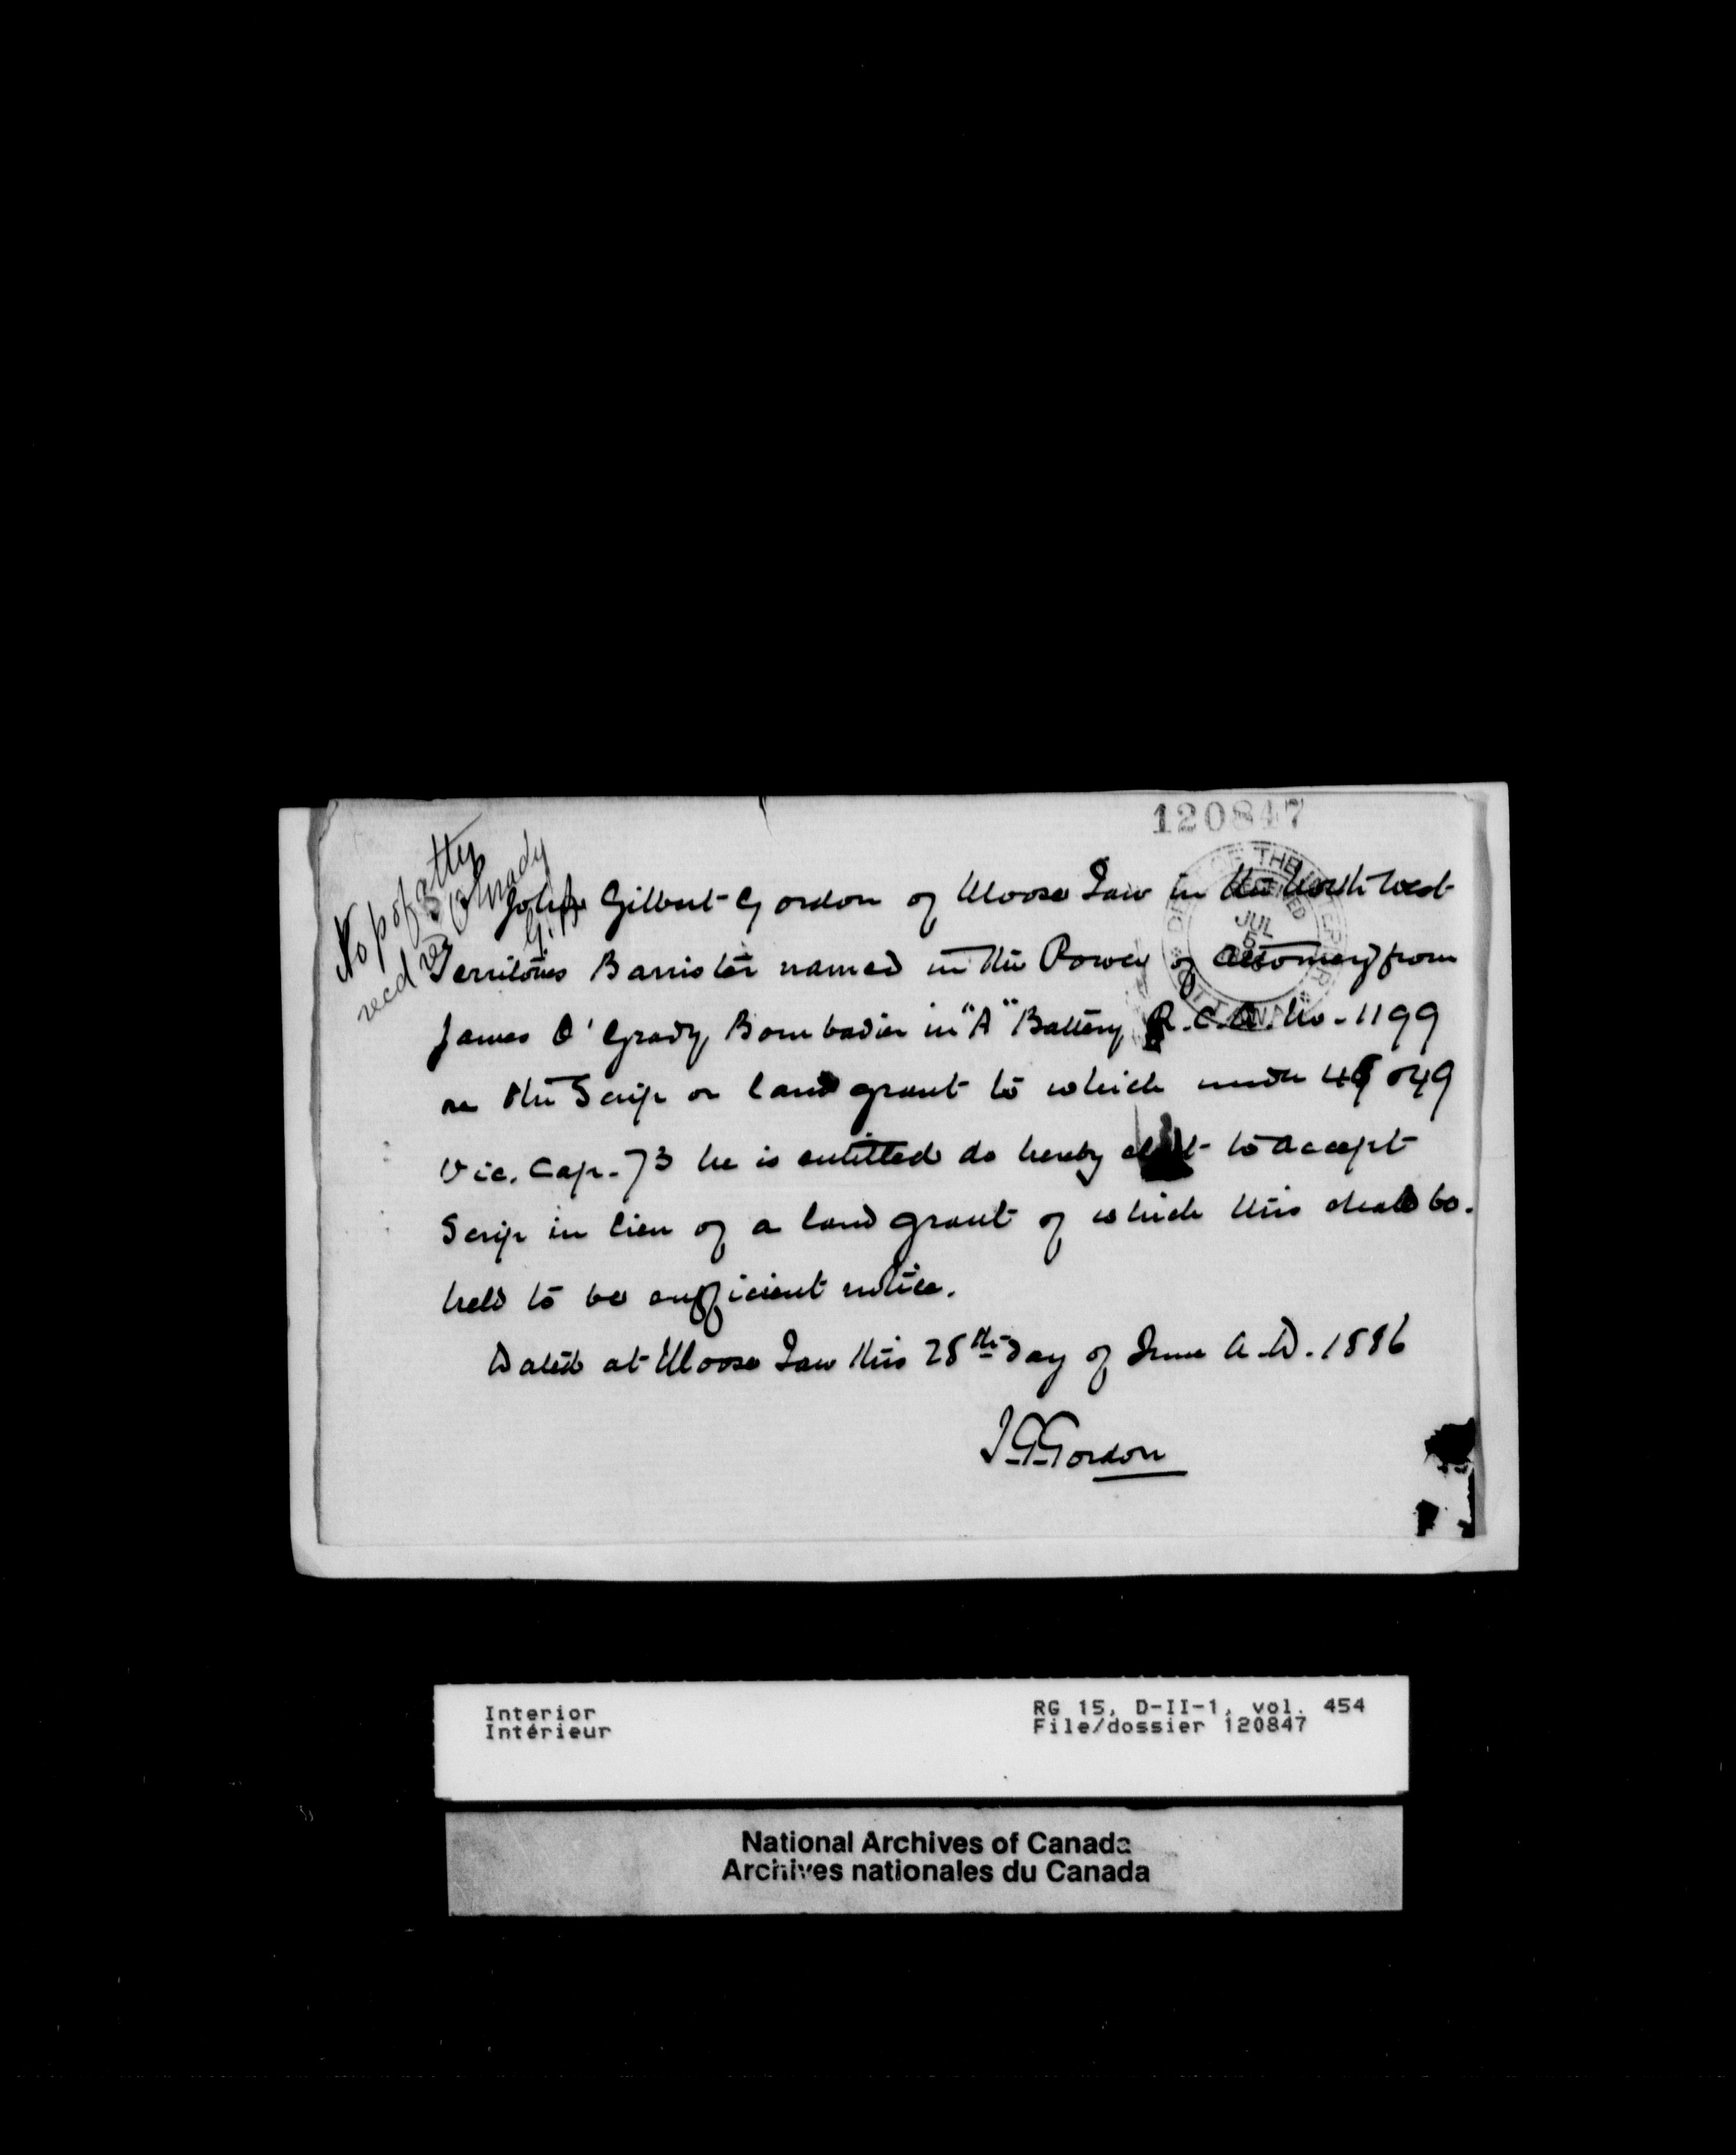 120847
No p of atty
recd re J. O'Grady
G.B.
DEPT OF THE INTERIOR
RECEIVED
JUL
5
1886
OTTAWA
I John Gilbert Gordon of Moose Jaw in the North West
Territories Barrister named in the Power of Attorney from
James O'Grady Bombadier in "A" Battery R.C.A. No. 1199
re the Scrip or land grant to which under 48 & 49
Vic. Cap. 73 he is entitled do hereby elect to accept
Scrip in lieu of a land grant of which this shall be.
held to be sufficient notice.
Dated at Moose Jaw this 28th day of June A.D. 1886
J.G. Gordon
Interior
Intérieur
RG 15, D-II-1, vol. 454
File/dossier 120847
National Archives of Canada
Archives nationales du Canada